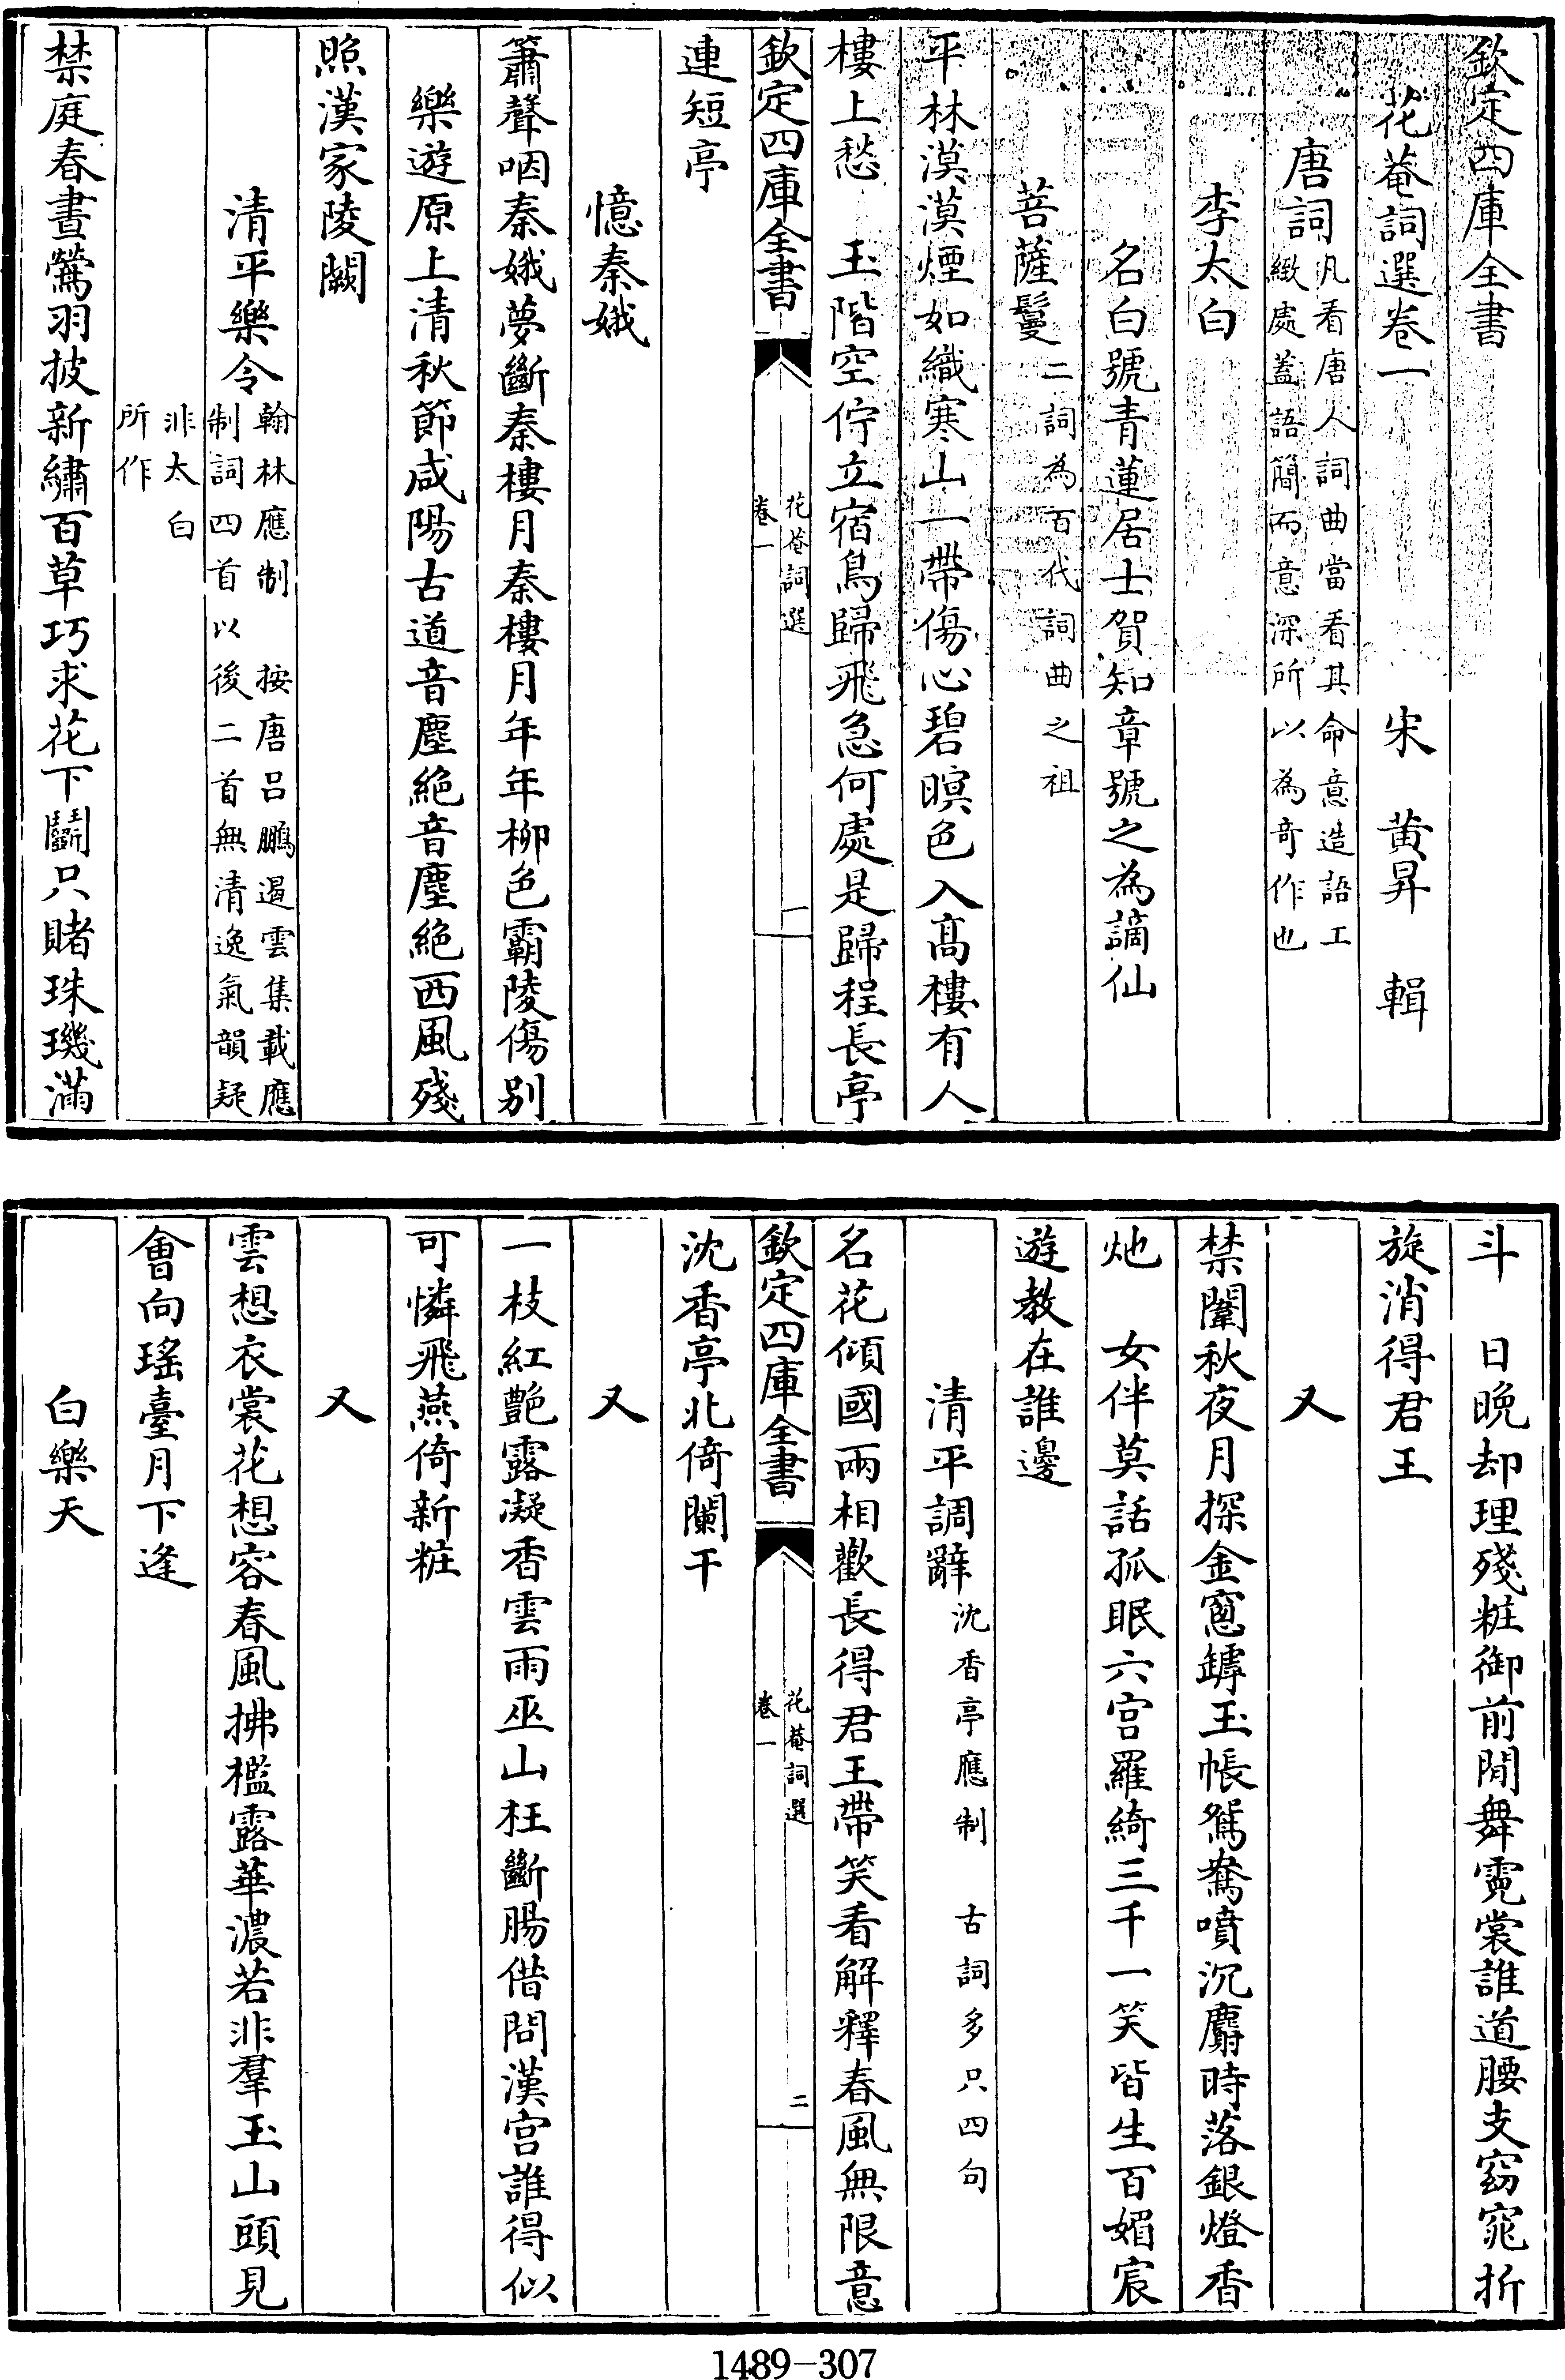 欽定四庫全書
花菴詞選卷一
宋　黄昇　輯
唐詞
凡看唐人詞曲當看其命意造語工
緻處葢語簡而意深所以為奇作也
李太白
名白號青蓮居士賀知章號之為謫仙
菩薩鬘
二詞為百代詞曲之祖
平林漠漠煙如織寒山一帶傷心碧暝色入髙樓有人
樓上愁　玉階空佇立宿鳥歸飛急何處是歸程長亭
欽定四庫全書
花菴詞選
卷一
一
連短亭
憶秦娥
簫聲咽秦娥夢斷秦樓月秦樓月年年柳色霸陵傷别
樂遊原上清秋節咸陽古道音塵絶音塵絶西風殘
照漢家陵闕
清平樂令
翰林應制　按唐吕鵬遏雲集載應
制詞四首以後二首無清逸氣韻疑
非太白
所作
禁庭春晝鶯羽披新繡百草巧求花下鬭只賭珠璣滿
斗　日晚却理殘粧御前閒舞霓裳誰道腰支窈窕折
旋消得君王
又
禁闈秋夜月探金窻罅玉帳鴛鴦噴沉麝時落銀燈香
灺　女伴莫話孤眠六宫羅綺三千一笑皆生百媚宸
遊教在誰邊
清平調辭
沈香亭應制　古詞多只四句
名花傾國兩相歡長得君王帶笑看解釋春風無限意
欽定四庫全書
花菴詞選
卷一
二
沈香亭北倚闌干
又
一枝紅艶露凝香雲雨巫山枉斷腸借問漢宫誰得似
可憐飛燕倚新粧
又
雲想衣裳花想容春風拂檻露華濃若非羣玉山頭見
會向瑤臺月下逢
白樂天
1489-307